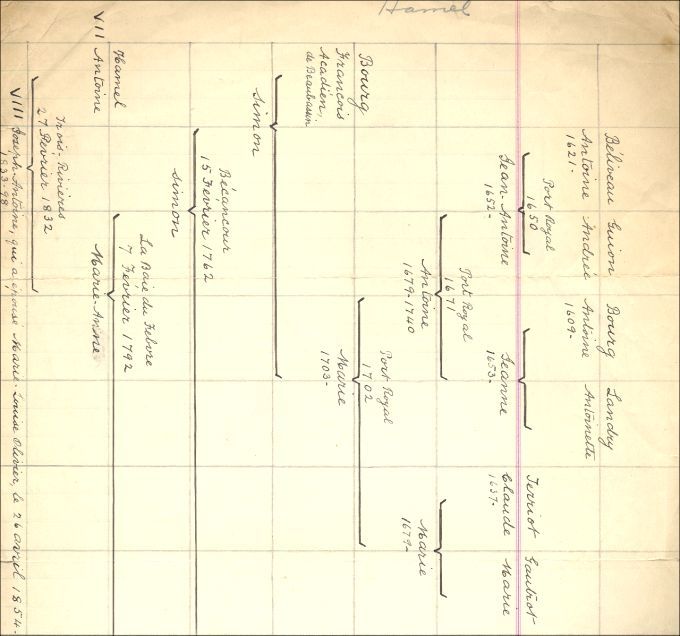 Hamel
Béliveau Guion Bourg Landry
Antoine Andrée Antoine Antoinette
1621- 1609-
Port Royal
1650
Terriot Gautrot
Jean-Antoine Jeanne Claude Marie
1652- 1653- 1637-
Port Royal
1671
Antoine Marie
1679-1740 1679-
Port Royal
1702
Bourg
François Marie
Acadien, 1703-
de Beaubassin
Simon
Béçancour
15 Février 1762
Simon
La Baie du Febvre
7 Février 1792
Hamel
VII Antoine Marie-Anne
Trois-Rivières
27 Février 1832
VIII Joseph-Antoine, qui a épousé Marie-Louise Olivier, le 26 avril 1854.
1833-98